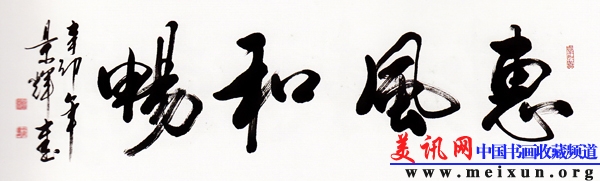 惠風和暢
辛卯年
景輝書
美讯网 中国书画收藏频道
www.meixun.org